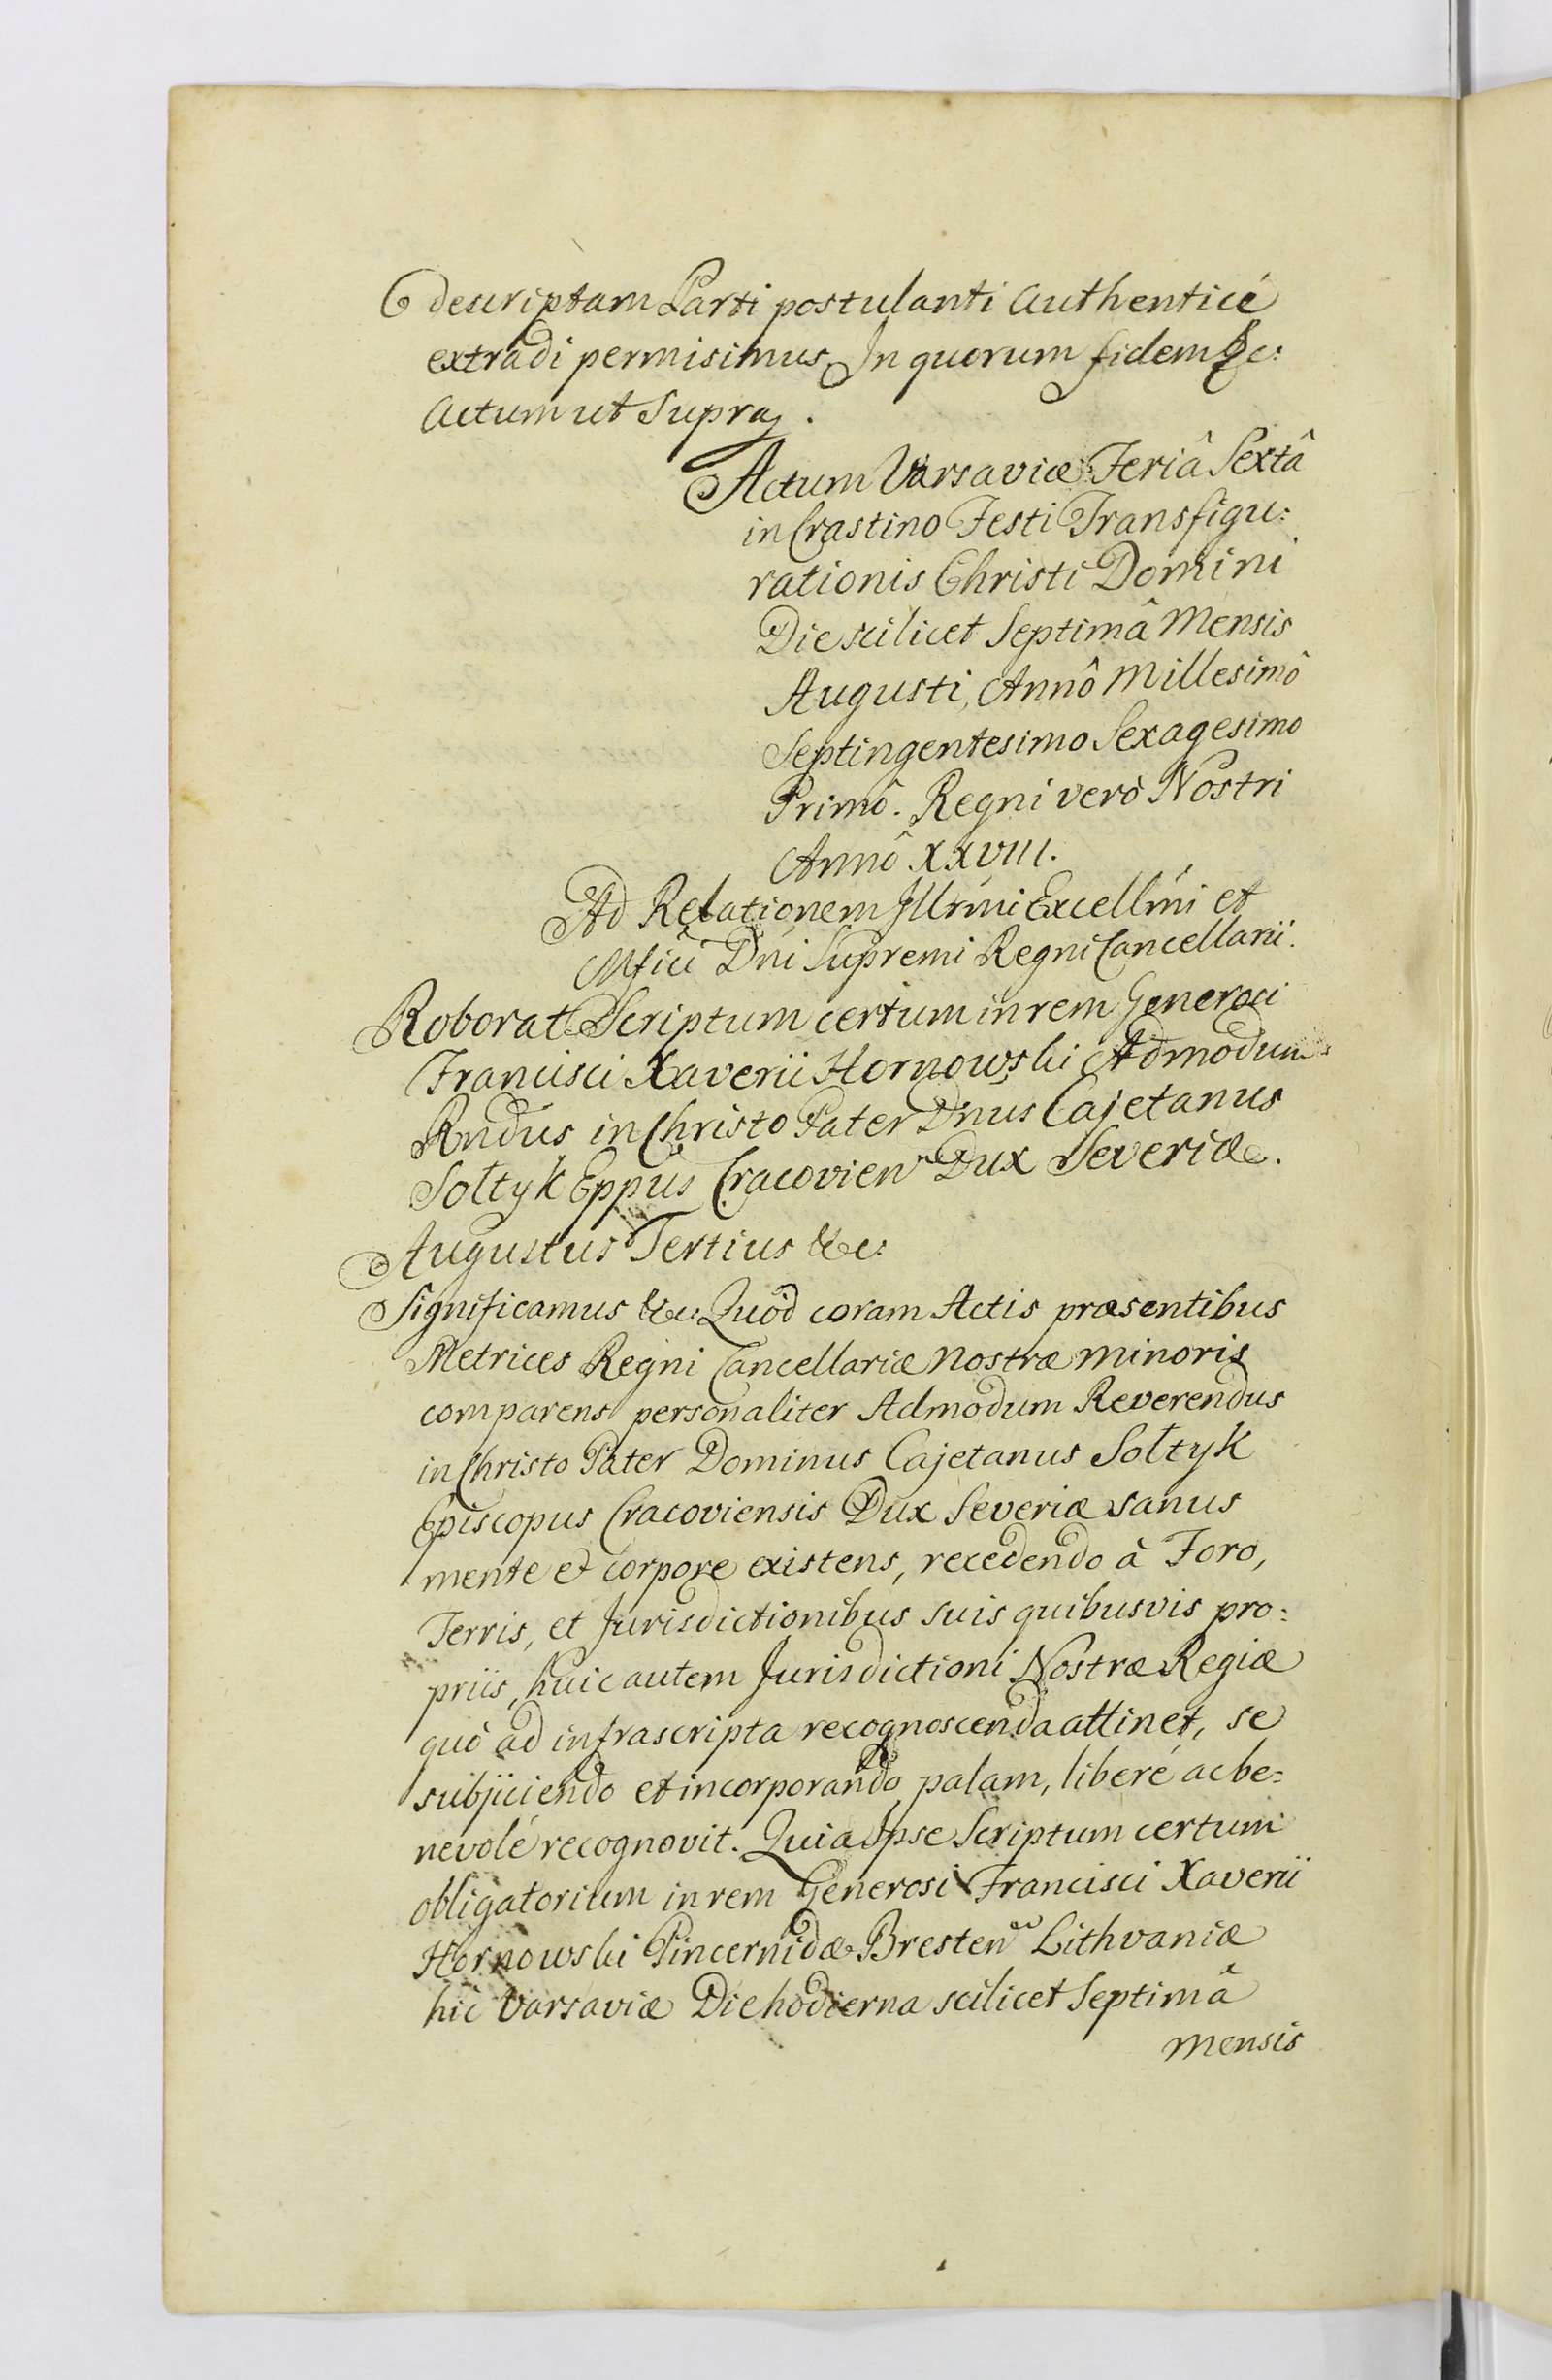 descriptam Parti postulanti Authenticé
extradi permisimus. In quorum fidem &c:
Actum ut Supra.
Actum Varsaviæ Feriâ Sextâ
in Crastino Festi Transfigu:
rationis Christi Domini
Die scilicet Septimâ Mensis
Augusti, Annô Millesimô
Septingentesimo Sexagesimo
Primô. Regni verò Nostri
Annô XXVIII.
Ad Relationem Illrmi Excellmi et
Mfici Dni Supremi Regni Cancellarii.
Roborat Scriptum certum in rem Generosi
Francisci Xaverii Hornowski Admodum
Rndus in Christo Pater Dnus Cajetanus
Sołtyk Eppus Cracovien Dux Severiæ.
Augustus Tertius &c:
Significamus &c: Quod coram Actis præsentibus
Metrices Regni Cancellariæ Nostræ Minoris
comparens personaliter Admodum Reverendus
in Christo Pater Dominus Cajetanus Sołtyk
Episcopus Cracoviensis Dux Severiæ sanus
mente et corpore existens, recedendo à Foro,
Terris, et Jurisdictionibus suis quibusvis pro:
priis, huic autem Jurisdictioni Nostræ Regiæ
quò ad infrascripta recognoscenda attinet, se
subjiciendo et incorporando, palam, liberé ac be:
nevolé recognovit. Quia Ipse Scriptum certum
obligatorium in rem Generosi Francisci Xaverii
Hornowski Pincernidæ Bresten Lithvaniæ
hîc Varsaviæ Die hodierna scilicet Septimâ
Mensis